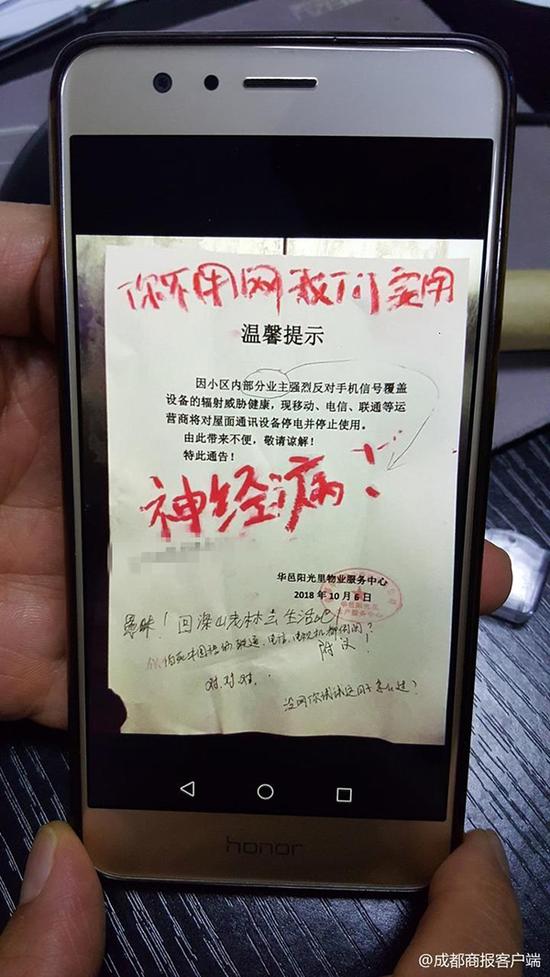 你不用网我们要用
温馨提示
因小区内部分业主强烈反对手机信号覆盖
设备的辐射威胁健康，现移动、电信、联通等运
营商将对屋面通讯设备停电并停止使用。
由此带来不便，敬请谅解！
特此通告！
神经病！
华邑阳光里物业服务中心
2018年10月6日
愚昧！回深山老林去生活吧！
附议！
对，对，对，
没网你试试这日子怎么过？
honor
@成都商报客户端